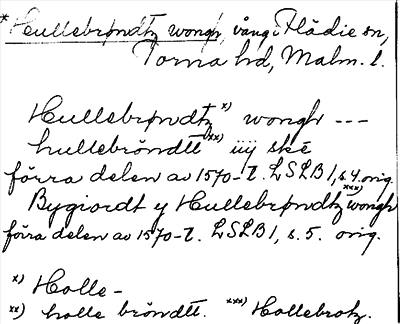 *Hullebrøndtz wongh, vång i Flädie sn,
Torna hd, Malm. l.
Hullebrøndtz x) wongh ---
hullebröndtt xx) iiij ske
förra delen av 1570-t. LSLB 1, s. 4. orig.
Bygiordt y Hullebrøndtz xxx) wongh
förra delen av 1570-t. LSLB 1, s. 5. orig.
x) Holle-
xx) holle bröndtt. xxx) Hollebrotz.